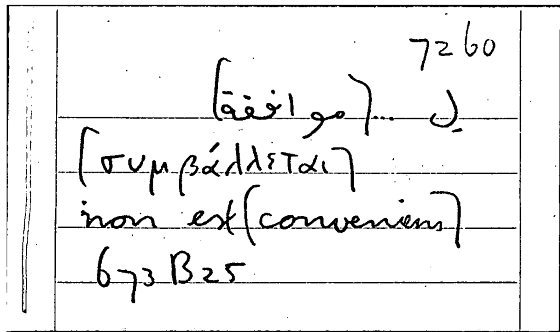 7260
ل ... [موافقة]
[συμβάλλεται]
non est [conveniens]
673B25